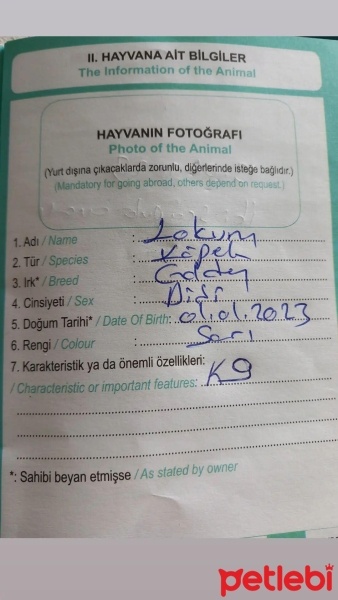 II. HAYVANA AİT BİLGİLER
The Information of the Animal
HAYVANIN FOTOĞRAFI
Photo of the Animal
(Yurt dışına çıkacaklarda zorunlu, diğerlerinde isteğe bağlıdır.)
(Mandatory for going abroad, others depend on request.)
1. Adı / Name : Lokum
2. Tür / Species : Köpek
3. Irk* / Breed : Golden
4. Cinsiyeti / Sex : Dişi
5. Doğum Tarihi* / Date Of Birth: 01.01.2023
6. Rengi / Colour : Sarı
7. Karakteristik ya da önemli özellikleri: K9
/ Characteristic or important features:
*: Sahibi beyan etmişse / As stated by owner
petlebi